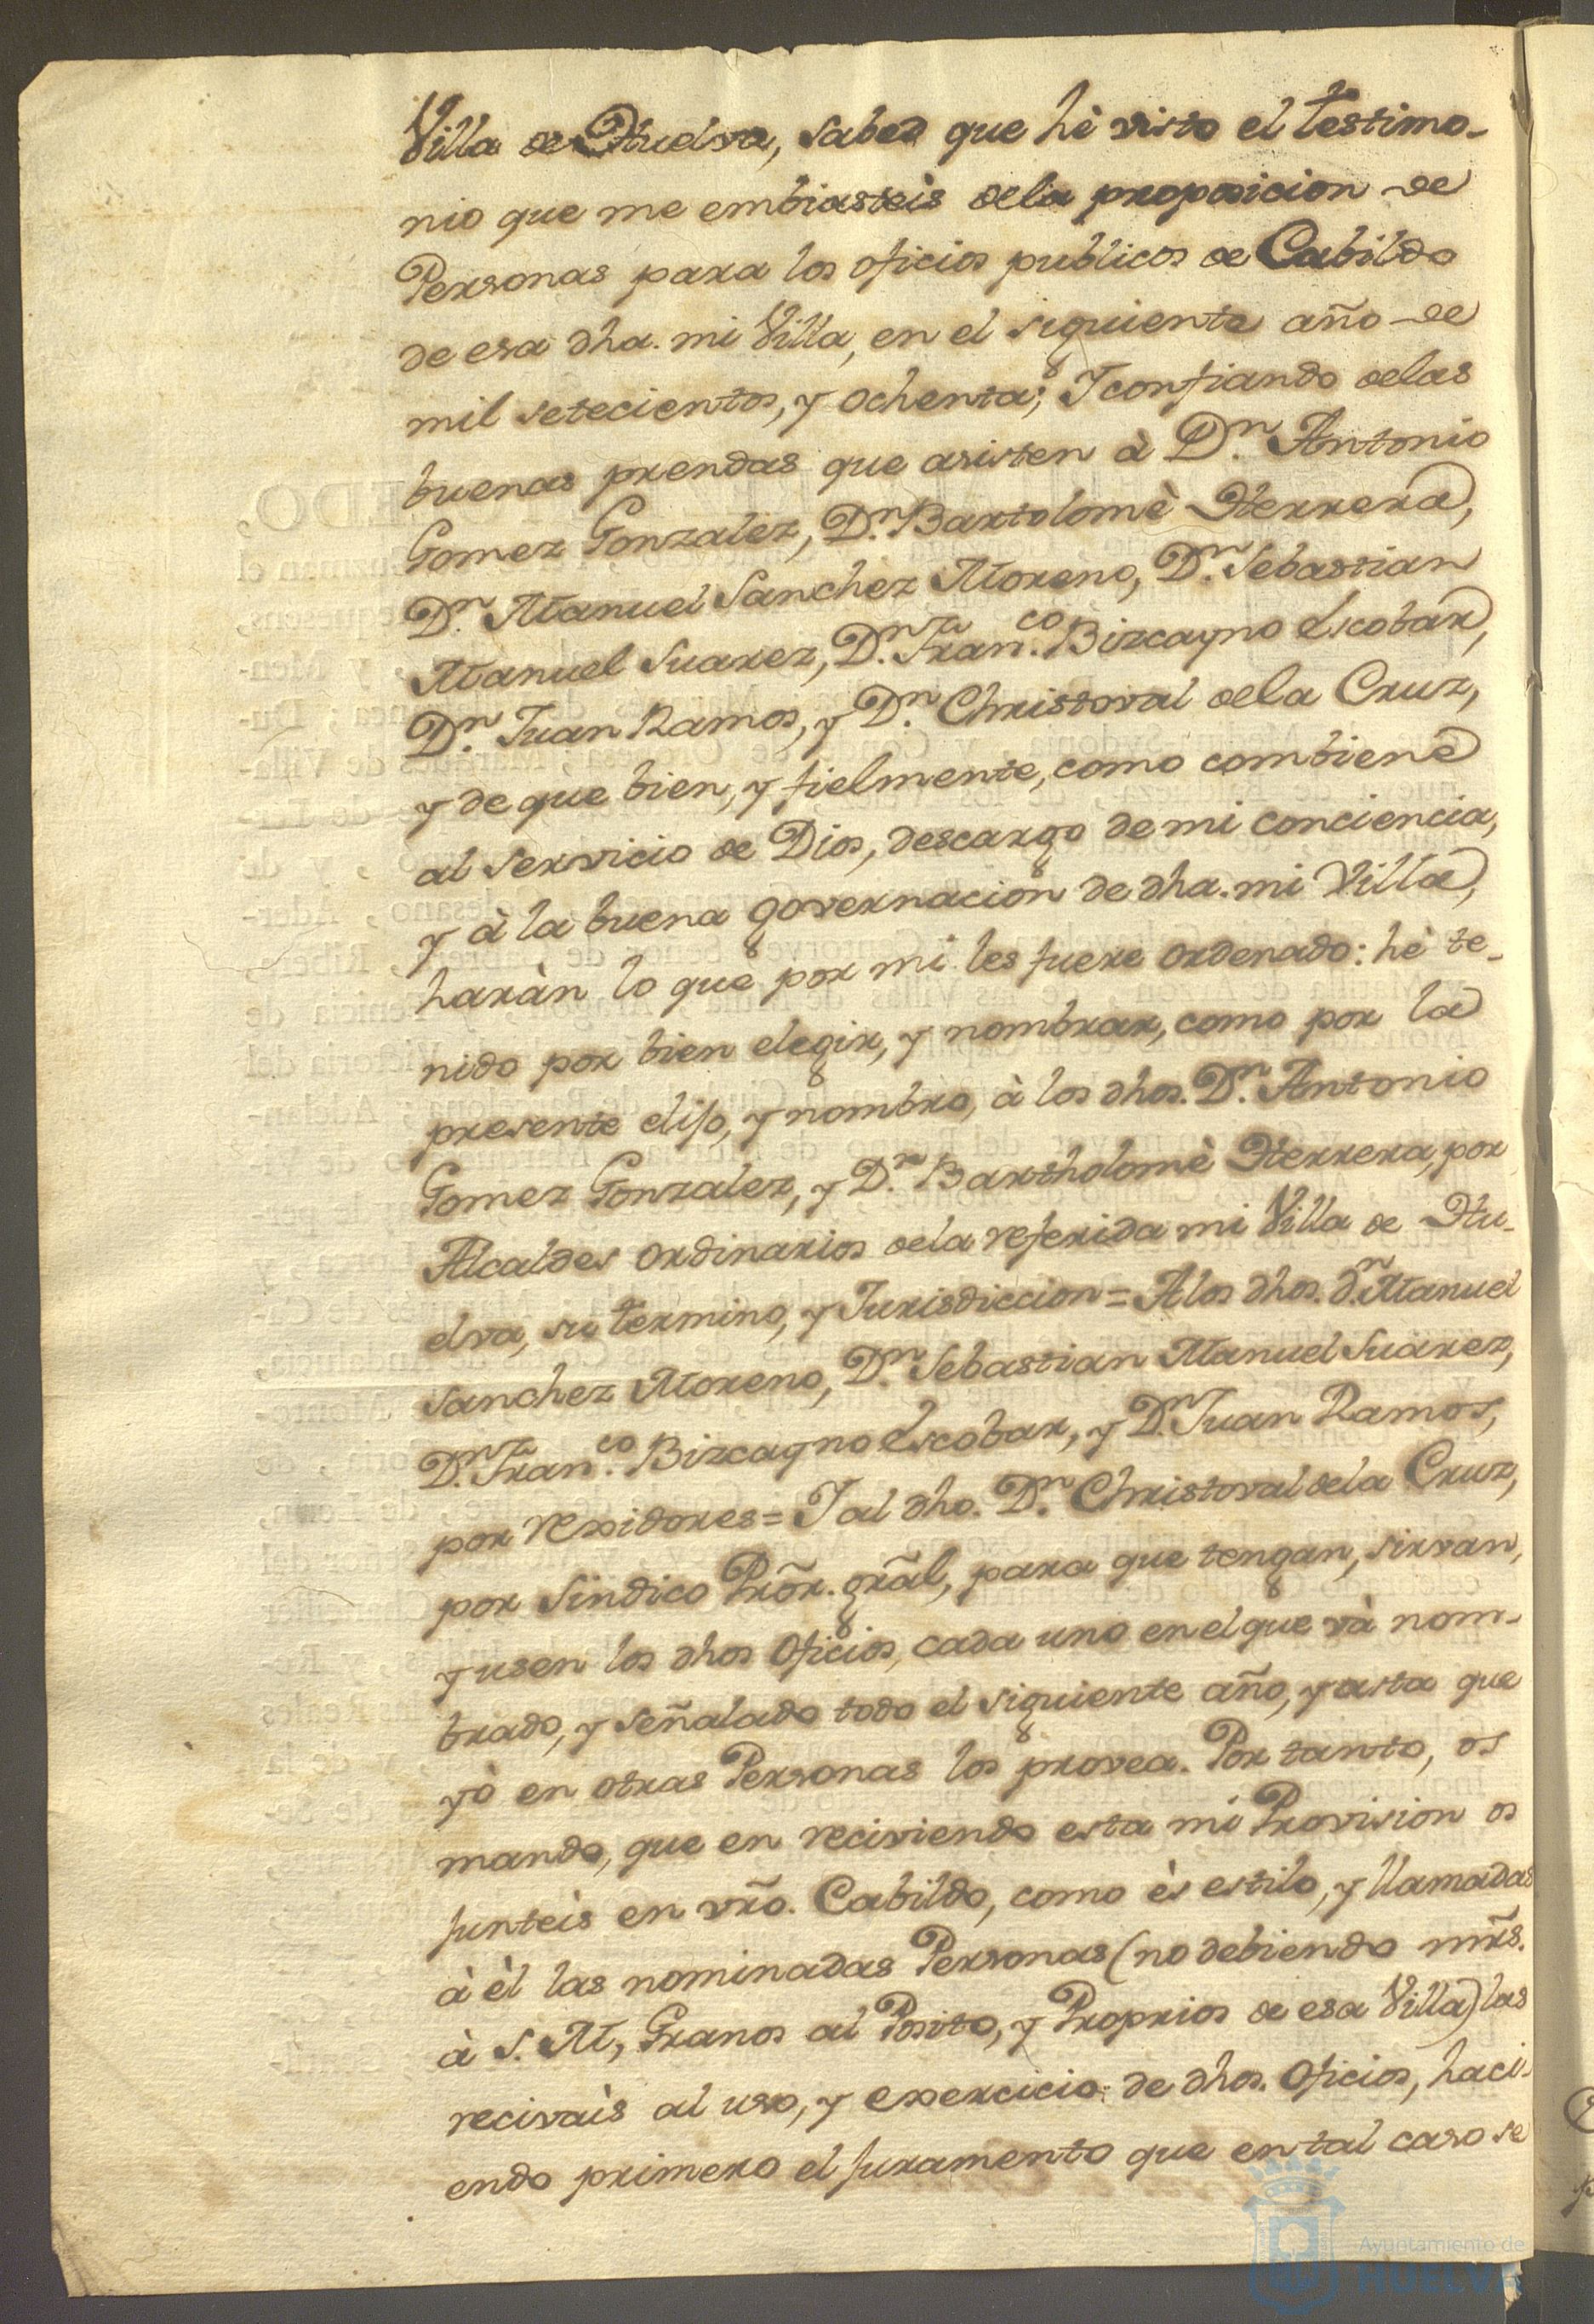 Villa de Huelva, sabed que hè visto el testimo-
nio que me embiasteis dela proposicion de
Personas para los oficios publicos de Cabildo
de esa dha. mi Villa, en el siguiente año de
mil setecientos, y ochenta; Y confiando delas
buenas prendas que asisten à Dn. Antonio
Gomez Gonzalez, Dn. Bartolomè Herrera,
Dn. Manuel Sanchez Moreno, Dn. Sebastian
Manuel Suarez, Dn. Franco. Bizcayno Escobar,
Dn. Juan Ramos, y Dn. Christoval dela Cruz,
y de que bien, y fielmente, como combiene
al servicio de Dios, descargo de mi conciencia,
y à la buena governacion de dha. mi Villa,
haràn lo que por mi les fuere ordenado: hè te-
nido por bien elegir, y nombrar, como por la
presente elijo, y nombro, à los dhos. Dn. Antonio
Gomez Gonzalez, y Dn. Bartholomè Herrera, por
Alcaldes ordinarios dela referida mi Villa de Hu-
elva, su termino, y Jurisdiccion = A los dhos. dn. Manuel
Sanchez Moreno, Dn. Sebastian Manuel Suarez,
Dn. Franco. Bizcayno Escobar, y Dn. Juan Ramos,
por rexidores = Y al dho. Dn. Christoval dela Cruz,
por Sindico Prõr. grãl, para que tengan, sirvan,
y usen los dhos oficios, cada uno en el que và nom-
brado, y señalado todo el siguiente año, y asta que
yò en otras Personas los provea. Por tanto, os
mando, que en reciviendo esta mi Provision os
junteis en vrõ. Cabildo, como ès estilo, y llamadas
à èl las nominadas Personas (no debiendo mrs̃.
à S. M, Granos al Posito, y Proprios de esa Villa) las
recivaìs al uso, y exercicio de dhos. oficios, haci-
endo primero el juramento que en tal caso se
Ayuntamiento de
HUELVA